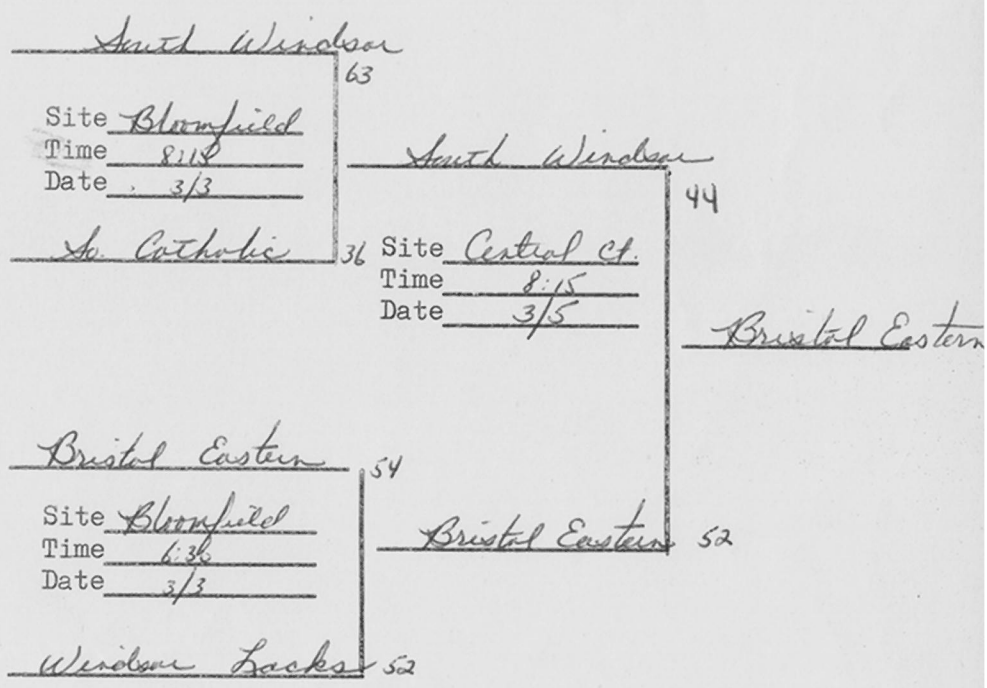 South Windsor
63
Site Bloomfield
Time 8:15
Date 3/3
So. Catholic 36
South Windsor
44
Site Central Ct.
Time 8:15
Date 3/5
Bristol Eastern
Bristol Eastern 54
Site Bloomfield
Time 6:30
Date 3/3
Bristol Eastern 52
Windsor Locks 52